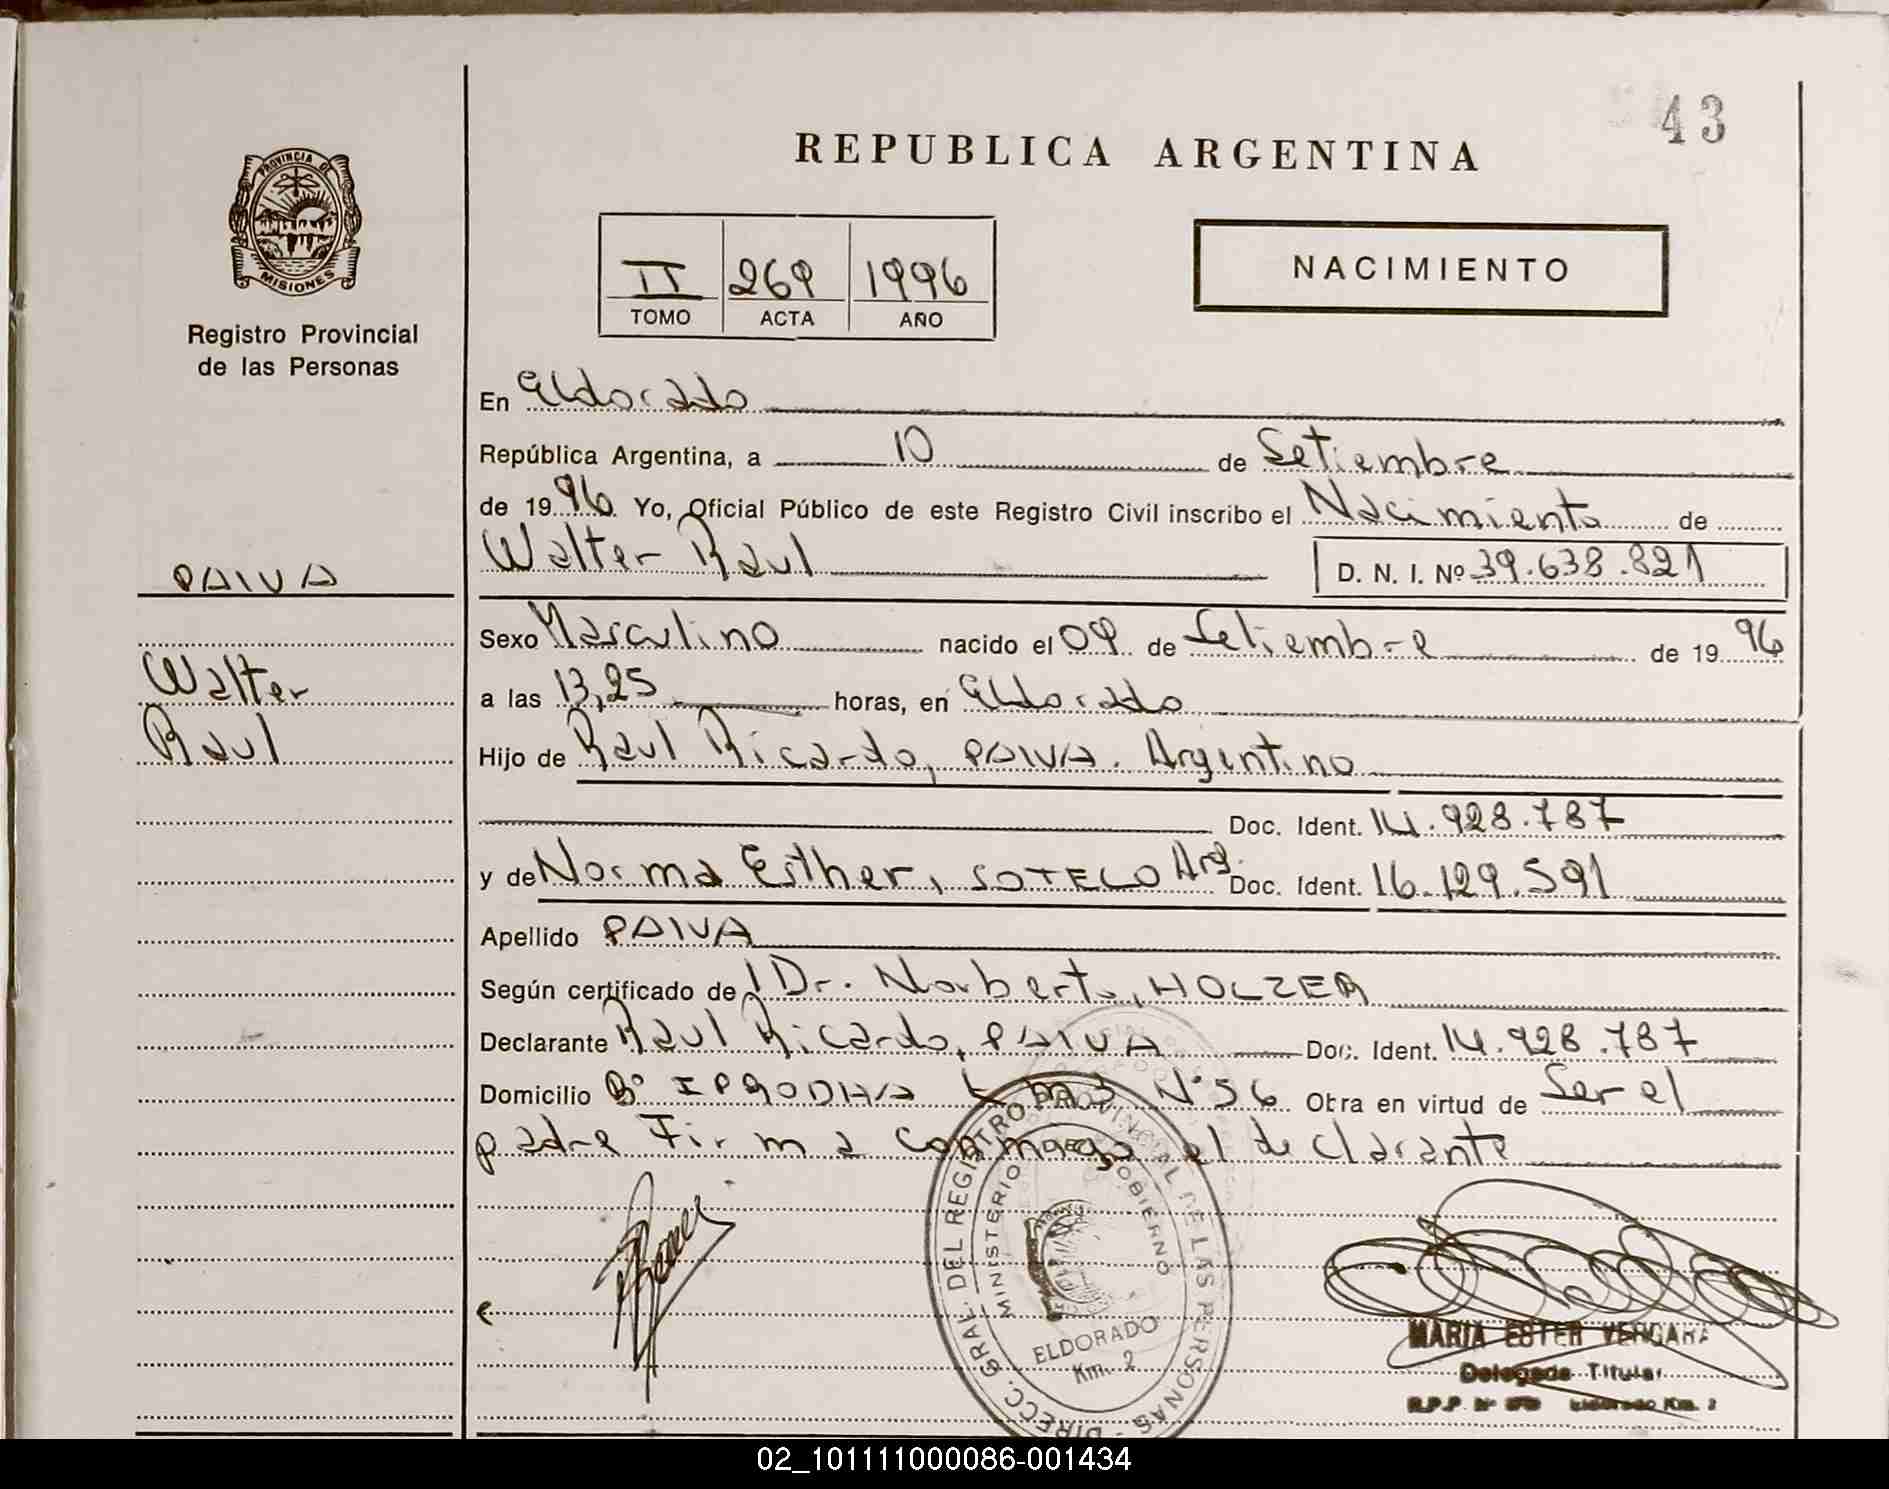 43
REPUBLICA ARGENTINA
PROVINCIA DE
MISIONES
Registro Provincial
de las Personas
II 269 1996
TOMO ACTA AÑO
NACIMIENTO
En Eldorado
República Argentina, a 10 de Setiembre
de 1996 Yo, Oficial Público de este Registro Civil inscribo el Nacimiento de
PAIVA
Walter Raul D. N. I. Nº 39.638.821
Sexo Masculino nacido el 09 de Setiembre de 1996
Walter
a las 13,25 horas, en Eldorado
Raul
Hijo de Raul Ricardo, PAIVA. Argentino
Doc. Ident. 14.928.787
y de Norma Esther, SOTELO Arg. Doc. Ident. 16.129.591
Apellido PAIVA
Según certificado de l Dr. Norberto, HOLZER
Declarante Raul Ricardo, PAIVA Doc. Ident. 14.928.787
Domicilio Bº IPRODHA Km 3 Nº 56 Obra en virtud de Ser el
padre Firma conmigo el declarante
DIRECC. GRAL. DEL REGISTRO PROVINCIAL DE LAS PERSONAS
MINISTERIO DE GOBIERNO
ELDORADO
Km. 2
MARIA ESTER VERGARA
Delegada Titular
R.P.P. Nº Eldorado Km. 2
02_101111000086-001434